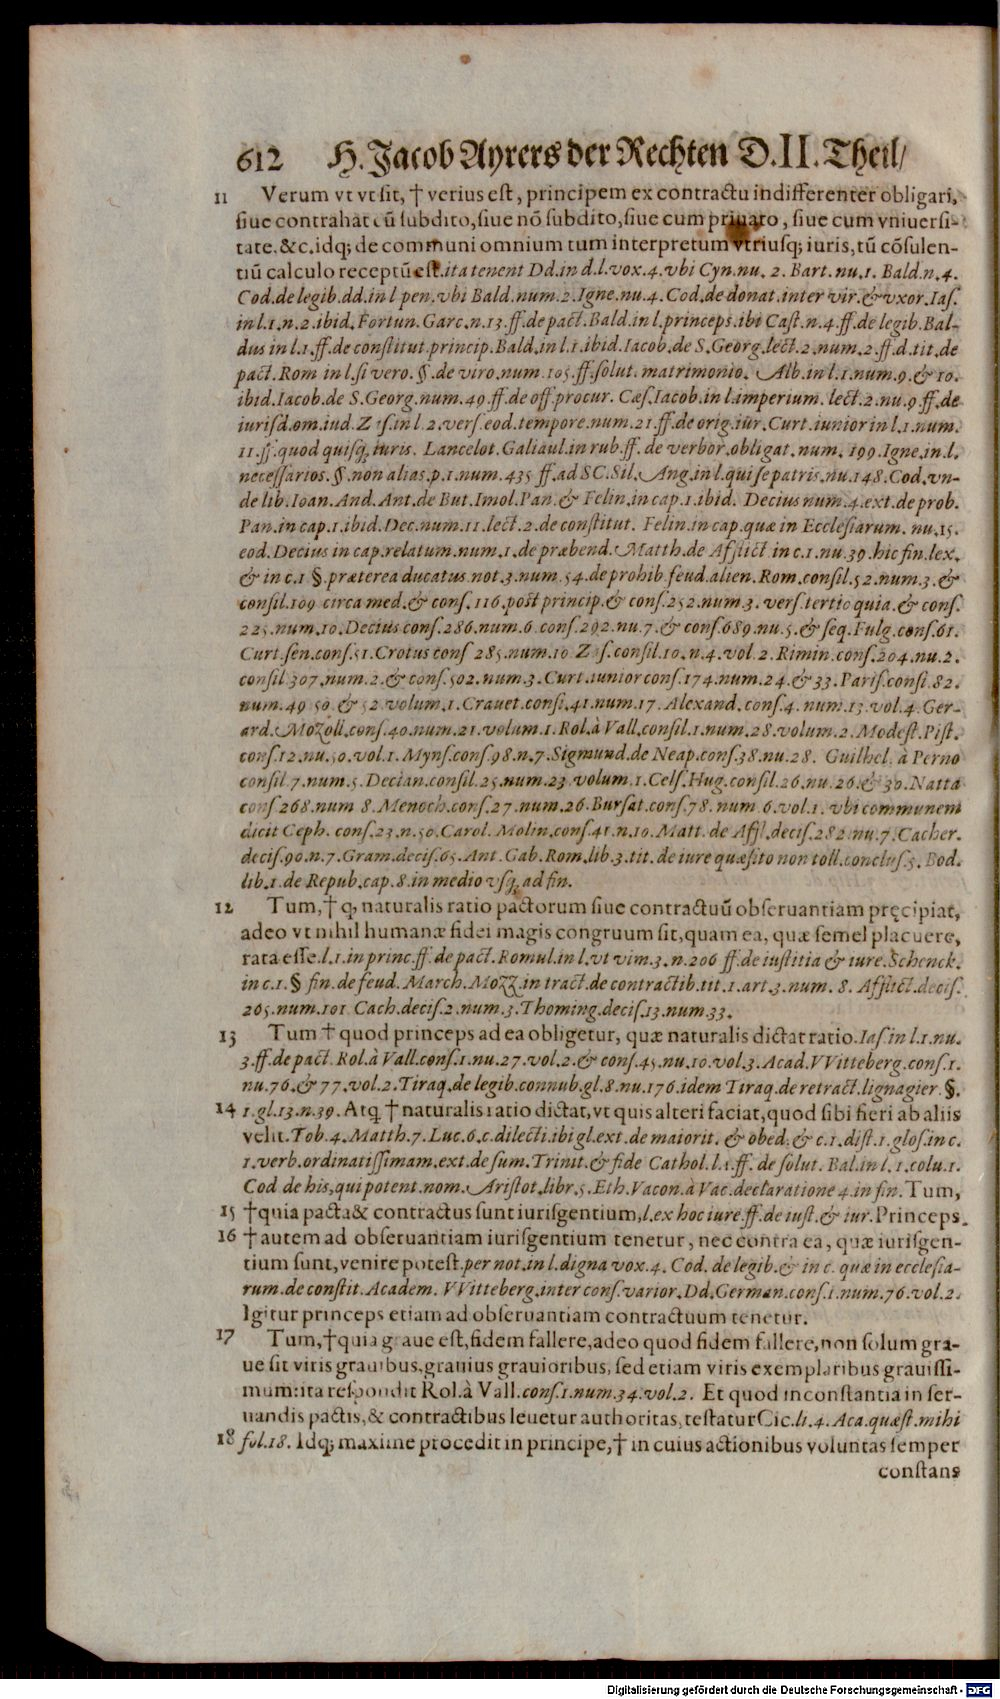 612 H. Jacob Ayrers der Rechten D. II. Theil/
11 Verum vt vt sit, † verius est, principem ex contractu indifferenter obligari,
siue contrahāt cū subdito, siue nō subdito, siue cum priuato, siue cum vniuersi-
tate. &c. idq; de communi omnium tum interpretum vtriusq; iuris, tū cōsulen-
tiū calculo receptū est. ita tenent Dd. in d. l. vox. 4. vbi Cyn. nu. 2. Bart. nu. 1. Bald. n. 4.
Cod. de legib. dd. in l pen. vbi Bald. num. 2. Igne. nu. 4. Cod. de donat. inter vir. & vxor. Ias.
in l. 1. n. 2. ibid. Fortun. Garc. n. 13. ff. de pact. Bald. in l. princeps. ibi Cast. n. 4. ff. de legib. Bal-
dus in l. 1. ff. de constitut. princip. Bald. in l. 1. ibid. Iacob. de S. Georg. lect. 2. num. 2. ff. d. tit. de
pact. Rom in l. si vero. §. de viro. num. 105. ff. solut. matrimonio. Alb. in l. 1. num. 9. & 10.
ibid. Iacob. de S. Georg. num. 49. ff. de off. procur. Cæs. Iacob. in l. imperium. lect. 2. nu. 9. ff. de
iurisd. om. iud. Zas. in l. 2. vers. eod. tempore. num. 21. ff. de orig. iur. Curt. iunior in l. 1. num.
11. ff. quod quisq; iuris. Lancelot. Galiaul. in rub. ff. de verbor. obligat. num. 199. Igne. in l.
necessarios. §. non alias. p. 1. num. 435 ff. ad SC. Sil. Ang. in l. qui se patris. nu. 148. Cod. vn-
de lib. Ioan. And. Ant. de But. Imol. Pan. & Felin. in cap. 1. ibid. Decius num. 4. ext. de prob.
Pan. in cap. 1. ibid. Dec. num. 11. lect. 2. de constitut. Felin. in cap. quæ in Ecclesiarum. nu. 15.
eod. Decius in cap. relatum. num. 1. de præbend. Matth. de Afflict in c. 1. nu. 39. hic fin. lex.
& in c. 1 §. præterea ducatus. not. 3. num. 54. de prohib. feud. alien. Rom. consil. 52. num. 3. &
consil. 109 circa med. & cons. 116. post princip. & cons. 252. num. 3. vers. tertio quia. & cons.
225. num. 10. Decius cons. 286. num. 6. cons. 292. nu. 7. & cons. 689. nu. 5. & seq. Fulg. cons. 61.
Curt. sen. cons. 51. Crotus cons 285. num. 10 Zas. consil. 10. n. 4. vol. 2. Rimin. cons. 204. nu. 2.
consil 307. num. 2. & cons. 502. num. 3. Curt. iunior cons. 174. num. 24. & 33. Paris. consi. 82.
num. 49 50. & 52. volum. 1. Crauet. consi. 41. num. 17. Alexand. cons. 4. num. 13. vol. 4. Ger-
ard. Mozoll. cons. 40. num. 21. volum. 1. Rol. à Vall. consil. 1. num. 28. volum. 2. Modest. Pist.
cons. 12. nu. 50. vol. 1. Myns. cons. 98. n. 7. Sigmund. de Neap. cons. 38. nu. 28. Guilhel. à Perno
consil. 7. num. 5. Decian. consil. 25. num. 23. volum. 1. Cels. Hug. consil. 26. nu. 26. & 30. Natta
cons 268. num 8. Menoch. cons. 27. num. 26. Bursat. cons. 78. num. 6. vol. 1. vbi communem
dicit Ceph. cons. 23. n. 50. Carol. Molin. cons. 41. n. 10. Matt. de Affl. decis. 282. nu. 7. Cacher.
decis. 90. n. 7. Gram. decis. 65. Ant. Gab. Rom. lib. 3. tit. de iure quæsito non toll. conclus. 5. Bod.
lib. 1. de Repub. cap. 8. in medio vsq; ad fin.
12 Tum, † q; naturalis ratio pactorum siue contractuū obseruantiam pręcipiat,
adeo vt nihil humanæ fidei magis congruum sit, quam ea, quæ semel placuere,
rata esse. l. 1. in princ. ff. de pact. Romul. in l. vt vim. 3. n. 206 ff. de iustitia & iure. Schenck.
in c. 1. § fin. de feud. March. Mozz. in tract. de contractib. tit. 1. art. 3. num. 8. Afflict. decis.
265. num. 101 Cach. decis. 2. num. 3. Thoming. decis. 13. num. 33.
13 Tum † quod princeps ad ea obligetur, quæ naturalis dictat ratio. Ias. in l. 1. nu.
3. ff. de pact. Rol. à Vall. cons. 1. nu. 27. vol. 2. & cons. 45. nu. 10. vol. 3. Acad. VVitteberg. cons. 1.
nu. 76. & 77. vol. 2. Tiraq. de legib. connub. gl. 8. nu. 176. idem Tiraq. de retract. lignagier. §.
14 1. gl. 13. n. 39. Atq; † naturalis ratio dictat, vt quis alteri faciat, quod sibi fieri ab aliis
velit. Tob. 4. Matth. 7. Luc. 6. c. dilecti. ibi gl. ext. de maiorit. & obed. & c. 1. dist. 1. glos. in c.
1. verb. ordinatissimam. ext. de sum. Trinit. & fide Cathol. l. 1. ff. de solut. Bal. in l. 1. colu. 1.
Cod de his, qui potent. nom. Aristot. libr. 5. Eth. Vacon. à Vac. declaratione 4. in fin. Tum,
15 † quia pacta & contractus sunt iurisgentium, l. ex hoc iure. ff. de iust. & iur. Princeps
16 † autem ad obseruantiam iurisgentium tenetur, nec contra ea, quæ iurisgen-
tium sunt, venire potest. per not. in l. digna vox. 4. Cod. de legib. & in c. quæ in ecclesia-
rum. de constit. Academ. VVitteberg. inter cons. varior. Dd. German. cons. 1. num. 76. vol. 2.
Igitur princeps etiam ad obseruantiam contractuum tenetur.
17 Tum, † quia graue est, fidem fallere, adeo quod fidem fallere, non solum gra-
ue sit viris grauibus, grauius grauioribus, sed etiam viris exemplaribus grauissi-
mum: ita respondit Rol. à Vall. cons. 1. num. 34. vol. 2. Et quod inconstantia in ser-
uandis pactis, & contractibus leuetur authoritas, testatur Cic. li. 4. Aca. quæst. mihi
18 fol. 18. Idq; maxime procedit in principe, † in cuius actionibus voluntas semper
constans
Digitalisierung gefördert durch die Deutsche Forschungsgemeinschaft - DFG